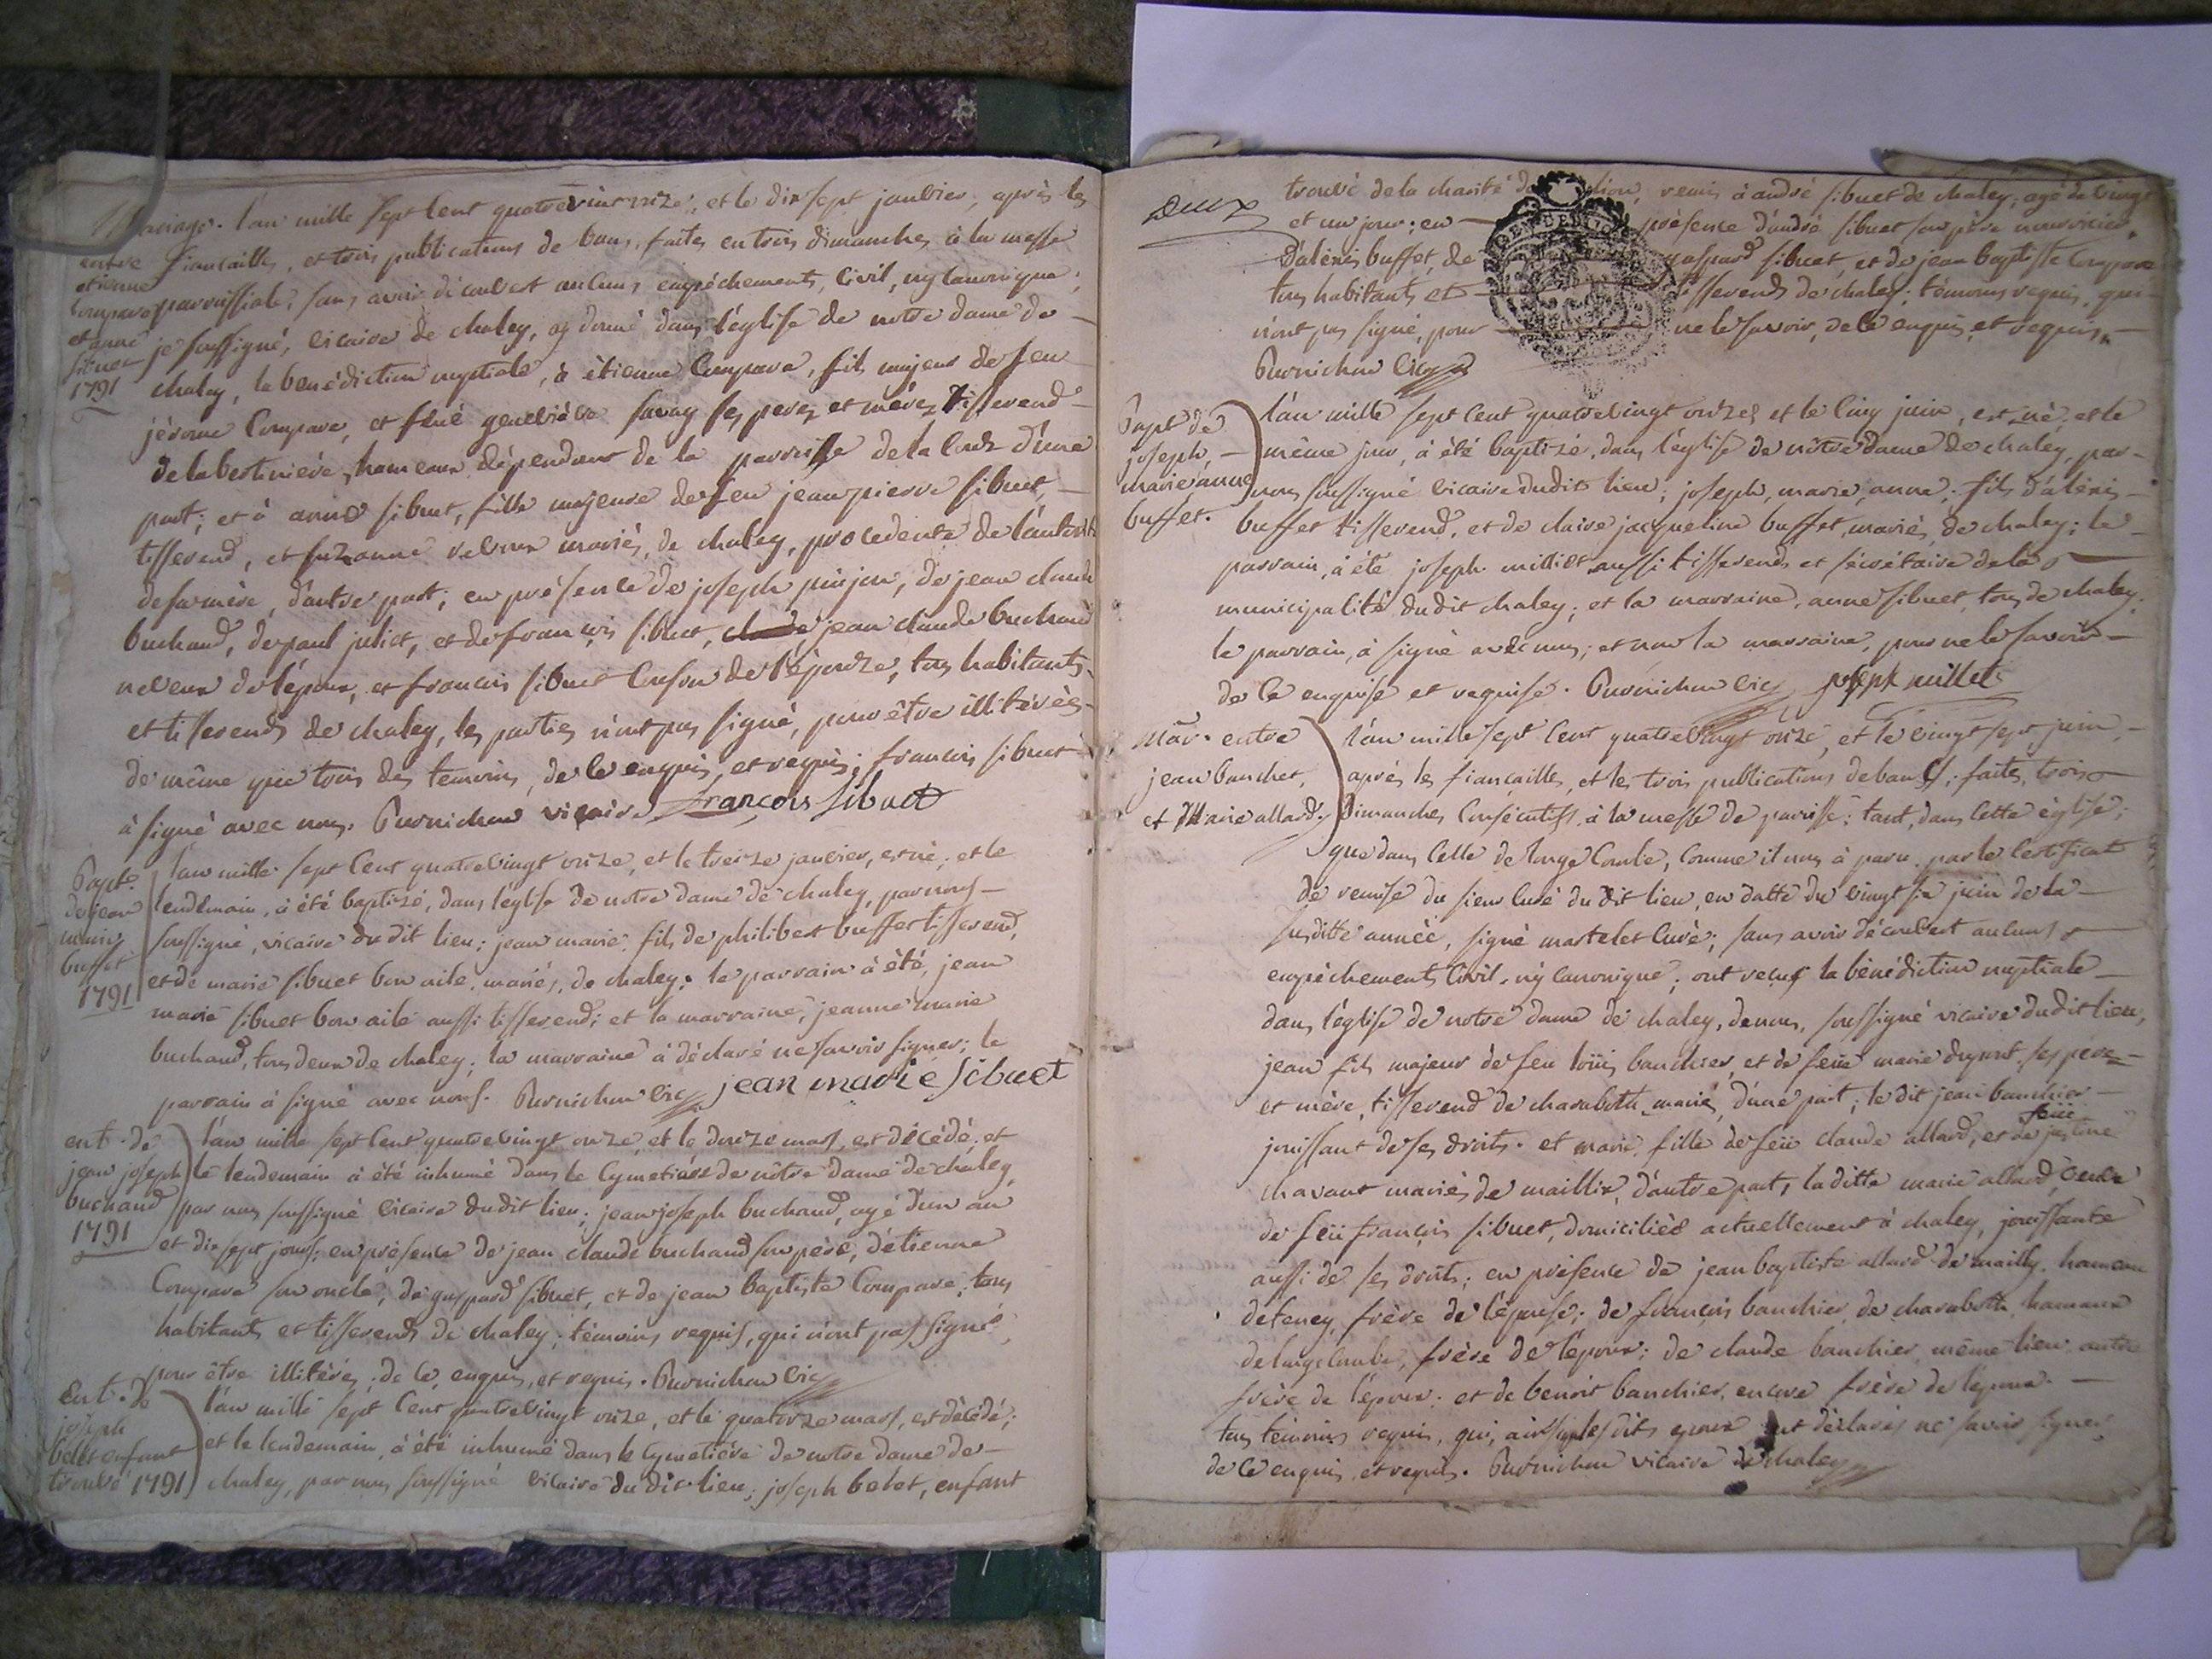 Mariage. l'an mille sept cent quatrevint onze, et le dix sept janvier, après les
entre fiancailles, et trois publications de bans, faites en trois dimanches à la messe
etienne
Compare parroissiale, sans avoir découvert aucuns empéchements, Civil, ny Canonique,
et anne je soussigné, vicaire de chaley, ay donné dans l'église de notre dame de
sibuet
1791 chaley, la bénédiction nuptiale, à étienne Compare, fils majeur de feu
jérome Compare, et feue genevieve savay ses peres et mères tisserend
de la bertiniére, hameaux dépendant de la parroisse de la Coux d'une
part; et à anne sibuet, fille majeure de feu jean pierre sibuet,
tisserend, et suzanne velvon mariés, de chaley, procedente de l'autorité
de sa mère, d'autre part; en présence de joseph pinjon, de jean claude
buchand, de paul juliet, et de françois sibuet, jean claude buchand
neveux de l'époux, et francois sibuet Cousin de l'épouze, tous habitants
et tisserends de chaley, les parties n'ont pas signé, pour être illitérés
de même que trois des temoins, de ce enquis, et requis; francois sibuet
à signé avec nous. Pernichon vicaire françois sibuet
Bapt. l'an mille sept cent quatrevingt onze, et le treize janvier, est né; et le
de jean lendemain, à été baptizé, dans l'église de notre dame de chaley, par nous
marie soussigné, vicaire du dit lieu; jean marie, fils de philibert buffet tisserend,
buffet et de marie sibuet bon aile, mariés, de chaley; le parrain à été, jean
1791 marie sibuet bon aile aussi tisserend; et la marraine, jeanne marie
buchand, tous deux de chaley; la marraine à déclaré ne savoir signer; le
parrain à signé avec nous. Pernichon vic. jean marie sibuet
ent. de l'an mille sept cent quatrevingt onze, et le douze mars, est décédé; et
jean joseph le lendemain à été inhumé dans le Cymetiére de nôtre dame de chaley,
buchand par nous soussigné vicaire du dit lieu; jean joseph buchand, agé d'un an
1791 et dix sept jours; en présence de jean claude buchand son père, d'étienne
Compare son oncle, de gaspard sibuet, et de jean baptiste Compare, tous
habitants et tisserends de chaley; témoins requis, qui n'ont pas signé,
pour être illitérés, de ce enquis, et requis. Pernichon vic.
Ent. de l'an mille sept cent quatrevingt onze, et le quatorze mars, est décédé;
joseph
belet enfant et le lendemain, à été inhumé dans le Cymetiére de notre dame de
trouvé 1791 chaley, par nous soussigné vicaire du dit lieu; joseph belet, enfant
deux
trouvé de la charité de lion, remis à andré sibuet de chaley, agé de vingt
et un jour; en présence d'andré sibuet son père nourricier,
d'alexis buffet, de gaspard sibuet, et de jean baptiste Compare
tous habitants et tisserends de chaley; témoins requis, qui
n'ont pas signé, pour ne le savoir, de ce enquis, et requis.
Pernichon vic.
Bapt de l'an mille sept cent quatrevingt onze et le cinq juin, est né; et le
joseph, même jour, à été baptizé, dans l'église de nôtre dame de chaley, par
marie anne nous soussigné vicaire dudit lieu; joseph, marie, anne, fils d'alexis
buffet. buffet tisserend, et de claire jacqueline buffet, mariés, de chaley; le
parrain, à été joseph milliet aussi tisserend et sécrétaire de la
municipalité dudit chaley; et la marraine, anne sibuet, tous de chaley;
le parrain, à signé avec nous; et non la marraine, pour ne le savoir
de ce enquise et requise. Pernichon vic. joseph millet
Mar. entre l'an mille sept cent quatrevingt onze, et le vingt sept juin,
jean banchet, après les fiançailles, et les trois publications de bans, faites, trois
et Marie allard. Dimanches Consécutifs, à la messe de paroisse; tant, dans cette église;
que dans celle de longe Combe, Comme il nous à paru par le Certificat
de remise du sieur Curé du dit lieu, en datte du vingt six juin de la
susditte année, signé martelet Curé; sans avoir découvert aucuns
empéchements Civil, ny Canonique, ont reçus la bénédiction nuptiale
dans l'église de notre dame de chaley, de nous, soussigné vicaire dudit lieu,
jean fils majeur de feu loüis banchier, et de feüe marie dupont, ses père
et mère, tisserend de charabotte, mariés, d'une part; le dit jean banchier
jouissant de ses droits. et marie, fille de feü claude allard, et de feüe justine
chavant mariés de maillix, d'autre part, laditte marie allard, veuve
de feü françois sibuet, domiciliée actuellement à chaley, jouissante
aussi de ses droits; en présence de jean baptiste allard de mailly, hameau
de teney, frère de l'épouse; de françois banchier, de charabotte hameaux
de longe Combe, frère de l'époux; de claude banchier, même lieu, autre
frère de l'époux; et de benoit banchier, encore frère de l'époux.
tous témoins requis, qui, ainsi que les dits epoux ont déclarés ne savoir signer
de ce enquis, et requis. Pernichon vicaire de chaley